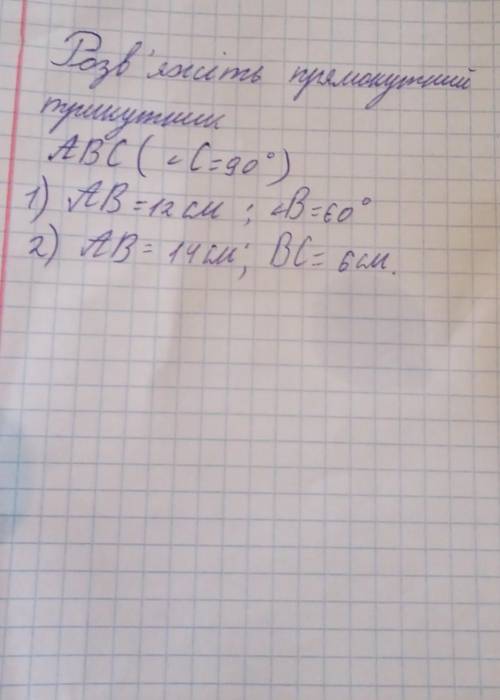 Розв'яжіть прямокутний
трикутник
ABC ( ∠C=90°)
1) AB=12см ; ∠B=60°
2) AB= 14см; BC= 6см.